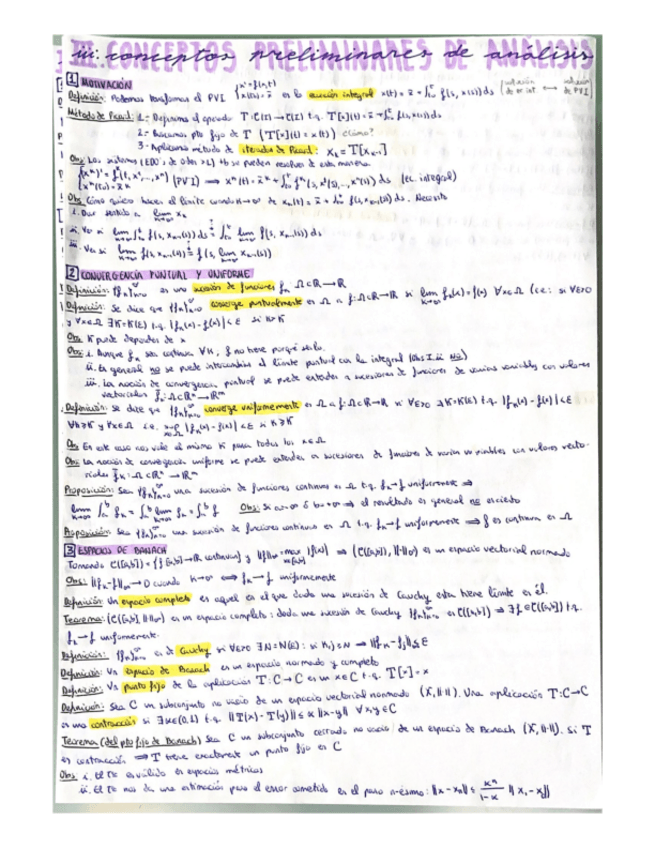 iii. CONCEPTOS PRELIMINARES DE ANÁLISIS
1 MOTIVACIÓN
Definición: Podemos transformar el PVI { x' = f(x,t) x(t₀) = x̄ en la ecuación integral x(t) = x̄ + ∫ f(s, x(s)) ds
Método de Picard: 1- Definimos el operador T: C(I) → C(I) t.q. T[x](t) = x̄ + ∫ f(s, x(s)) ds
2- Buscamos pto fijo de T (T[x](t) = x(t)) ¿Cómo?
3- Aplicamos método de iterados de Picard: xₖ = T[xₖ₋₁]
Obs: Los sistemas (EDO's de orden >1) tb se pueden resolver de esta manera
(PVI) ⟹ (ec. integral)
Obs: Cómo quiero hacer el límite cuando k→∞ de Necesito
i. Dar sentido a lim xₖ
ii. Ver si lim ∫ f(s, xₖ₋₁(s)) ds = ∫ lim f(s, xₖ₋₁(s)) ds
iii. Ver si lim f(s, xₖ₋₁(s)) = f(s, lim xₖ₋₁(s))
2 CONVERGENCIA PUNTUAL Y UNIFORME
Definición: {fₖ} es una sucesión de funciones fₖ: Ω⊂R → R
Definición: Se dice que {fₖ} converge puntualmente en Ω a f: Ω⊂R → R si lim fₖ(x) = f(x) ∀x∈Ω (i.e.: si ∀ε>0
y ∀x∈Ω ∃K=K(ε) t.q. |fₖ(x) - f(x)| < ε si k≥K
Obs: K puede depender de x
Obs: i. Aunque fₖ sea continua ∀k, f no tiene porqué serlo.
ii. En general no se puede intercambiar el límite puntual con la integral (Obs 1.ii NO)
iii. La noción de convergencia puntual se puede extender a sucesiones de funciones de varias variables con valores
vectoriales fₖ: Ω⊂Rⁿ → Rᵐ
Definición: Se dice que {fₖ} converge uniformemente en Ω a f: Ω⊂R → R si ∀ε>0 ∃K=K(ε) t.q. |fₖ(x) - f(x)| < ε
∀k≥K y ∀x∈Ω i.e. sup |fₖ(x) - f(x)| < ε si k≥K
Obs: En este caso nos vale el mismo K para todos los x∈Ω
Obs: La noción de convergencia uniforme se puede extender a sucesiones de funciones de varias variables con valores vecto-
riales fₖ: Ω⊂Rⁿ → Rᵐ
Proposición: Sea {fₖ} una sucesión de funciones continuas en Ω t.q. fₖ → f uniformemente ⟹
lim ∫ fₖ = ∫ lim fₖ = ∫ f Obs: Si a=-∞ ó b=+∞ ⟹ el resultado en general no es cierto
Proposición: Sea {fₖ} una sucesión de funciones continuas en Ω t.q. fₖ → f uniformemente ⟹ f es continua en Ω
3 ESPACIOS DE BANACH
Tomando C([a,b]) = {f: [a,b] → R continuas} y ||f||∞ = max |f(x)| ⟹ (C([a,b]), ||·||∞) es un espacio vectorial normado
Obs: ||fₖ - f||∞ → 0 cuando k→∞ ⟺ fₖ → f uniformemente
Definición: Un espacio completo es aquel en el que dada una sucesión de Cauchy esta tiene límite en él.
Teorema: (C([a,b]), ||·||∞) es un espacio completo: dada una sucesión de Cauchy {fₖ} en C([a,b]) ⟹ ∃f∈C([a,b]) t.q.
fₖ → f uniformemente.
Definición: {fₖ} es de Cauchy si ∀ε>0 ∃N=N(ε): si k,j≥N ⟹ ||fₖ - fⱼ|| ≤ ε
Definición: Un espacio de Banach es un espacio normado y completo
Definición: Un punto fijo de la aplicación T: C → C es un x∈C t.q. T[x] = x
Definición: Sea C un subconjunto no vacío de un espacio vectorial normado (X, ||·||). Una aplicación T: C → C
es una contracción si ∃α∈(0,1) t.q. ||T(x) - T(y)|| ≤ α ||x-y|| ∀x,y∈C
Teorema (del pto fijo de Banach) Sea C un subconjunto cerrado no vacío de un espacio de Banach (X, ||·||). Si T
es contracción ⟹ T tiene exactamente un punto fijo en C
Obs: i. El Tª es válido en espacios métricos
ii. El Tª nos da una estimación para el error cometido en el paso n-ésimo: ||x - xₙ|| ≤ αⁿ/(1-α) ||x₁ - x₀||